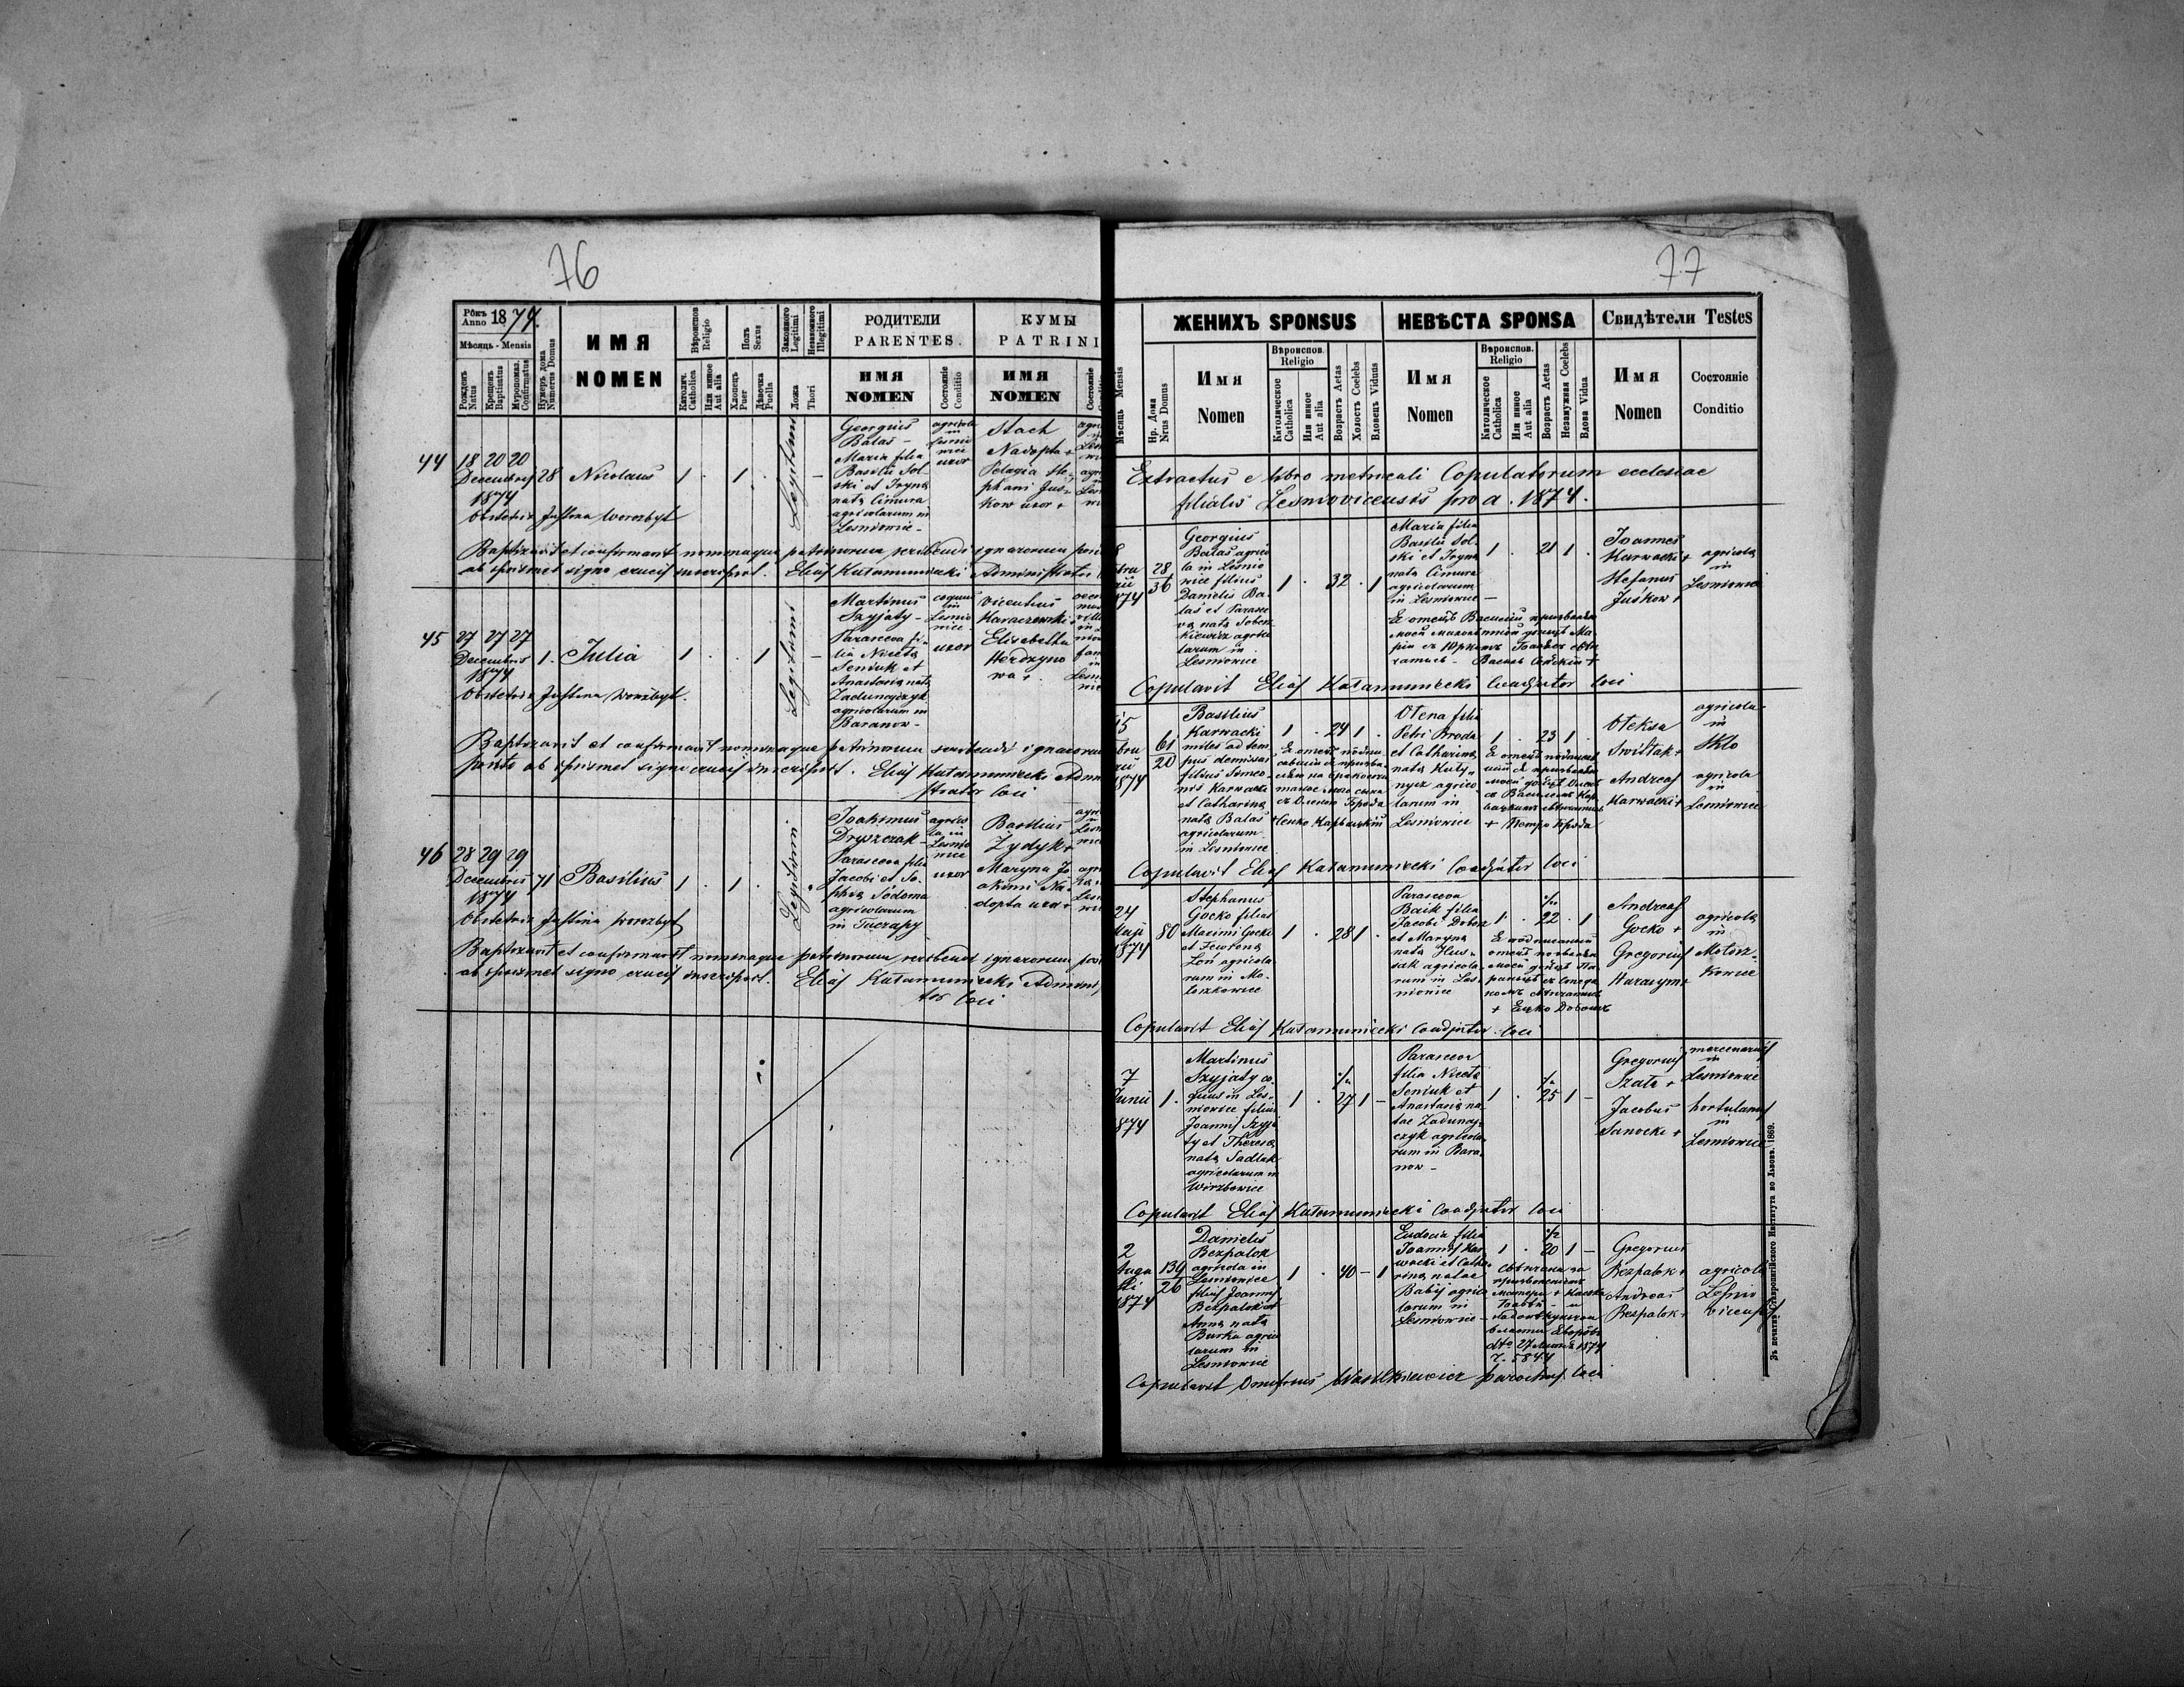 76
Рôкъ Anno 1874.
Мѣсяць - Mensis
Рожденъ Natus
Крещенъ Baptisatus
Мѵропомаз. Confirmatus
Нумеръ дома Numerus Domus
ИМЯ
NOMEN
Вѣроиспов Religio
Католич. Catholica
Или иное Aut alia
Полъ Sexus
Хлопець Puer
Дѣвочка Puella
Законного Legitimi
Незаконного Illegitimi
Ложа Thori
РОДИТЕЛИ
PARENTES.
ИМЯ
NOMEN
Состояніе Conditio
КУМЫ
PATRINI
ИМЯ
NOMEN
44
18 20 20
Decembris
1874
28
Nicolaus
1 . 1 .
Legitimi
Georgius
Bałas -
Maria filia
Basilii Sol-
ski et Iryna
nata Cimura
agricolarum in
Lesniowice -
agricola
in
Lesnio
wice
uxor
Stach
Nadopta +
Pelagia Ste-
phani Jus-
kow uxor +
Obstetrix Justina Worozbyt
Baptizavit et confirmavit nominaque patrinorum scribendi ignarorum
ab ipsismet signo crucis inscripsit. Elias Katamuniecki Administrator
45
27 27 27
Decembris
1874
1.
Julia
1 . . 1
Legitimi
Martinus
Szyjaty -
Parasceva fi-
lia Niceta
Seniuk et
Anastasia nata
Zadunajczyk
agricolarum in
Baranow -
coquus
in
Lesnio
nice
uxor
Vicentius
Karaczewski
Elisabetha
Herdzyno
wa +
Obstetrix Justina Worozbyt.
Baptizavit et confirmavit nominaque patrinorum scribendi ignarorum
ab ipsismet signo crucis inscripsit. Elias Katamuniecki Admini
strator loci
46
28 29 29
Decembris
1874
71
Basilius
1 . 1 .
Legitimi
Joakimus
Dryszczak -
Parasceva filia
Jacobi et So-
phia Sodoma
agricolarum
in Tuczapy
agrico
la in
Lesnio
nice
uxor
Basilius
Zydyk +
Maryna Jo
akimi Na-
dopta uxor +
Obstetrix Justina Worozbyt
Baptizavit et confirmavit nominaque patrinorum scribendi ignarorum
ab ipsismet signo crucis inscripsit. Elias Katamuniecki Administra
tor loci
77
ЖЕНИХЪ SPONSUS
НЕВѢСТА SPONSA
Свидѣтели Testes
Мѣсяць Mensis
Нр. Дома Nrus Domus
Имя
Nomen
Вѣроиспов. Religio
Католическое Catholica
Или иное Aut alia
Возрастъ Aetas
Холостъ Coelebs
Вдовецъ Viduus
Имя
Nomen
Вѣроиспов. Religio
Католическое Catholica
Или иное Aut alia
Возрастъ Aetas
Незамужная Coelebs
Вдова Vidua
Имя
Nomen
Состояніе
Conditio
Extractus e libro metricali Copulatorum ecclesiae
filialis Lesniovicensis pro a. 1874.
28
36
Georgius
Bałas agrico
la in Lesnio
wice filius
Danielis Ba-
łas et Parasce
va nata Sobec
kiewicz agrico
larum in
Lesniowice
1 . 32 . 1
Maria filia
Basilii Sol-
ski et Iryna
nata Cimura
agricolarum
in Lesniowice -
1 . 21 1 .
Joannes
Karwacki +
Stefanus
Juśkow +
agricola
in
Lesniowice
Copulavit Elias Katamuniecki Coadjutor loci
15
1874
61
20
Basilius
Karwacki
miles ad tem
pus demissus
filius Simeo-
nis Karwacki
et Catharina
nata Bałas
agricolarum
in Lesniowice
1 . 24 1 .
Ołena filia
Petri Broda
et Catharina
nata Kuty-
nycz agrico-
larum in
Lesniowice
1 . 23 1 .
+ Петро Брода
Ołeksa
Swistak +
Andreas
Karwacki +
agricola
in
Kło
agricola
in
Lesniowice
Copulavit Elias Katamuniecki Coadjutor loci
24
Maji
1874
80
Stephanus
Gocko filius
Maximi Gocki
et Fewrona
Loń agricola-
rum in Mo-
łoszkowice
1 . 28 1 .
Parasceva
Baik filia
Jacobi Dobosz
et Maryna
nata Hus-
sak agricola-
rum in Les-
niowice
1 . 22 . 1
Andreas
Gocko +
Gregorius
Harasym +
agricola
in
Mołosz-
kowice
Copulavit Elias Katamuniecki Coadjutor loci
7
Junii
1874
1.
Martinus
Szyjaty co-
quus in Les-
niowice filius
Joannis Szyja
ty et Theresa
nata Sadlak
agricolarum in
Wirzbowice
1 . 27 1 -
Parasceva
filia Niceta
Seniuk et
Anastasia na-
tae Zadunaj-
czyk agricola-
rum in Bara-
now -
1 . 25 1 -
Gregorius
Szala +
Jacobus
Sanocki +
mercenarius
in
Lesniowice
hortulanus
in
Lesniowice
Copulavit Elias Katamuniecki Coadjutor loci
2
Augu
sti
1874
139
26
Daniełus
Bezpalok
agricola in
Lesniowice
filius Joannis
Bezpalok et
Anna nata
Burka agrico
larum in
Lesniowice
1 . 40 - 1
Eudocia filia
Joannis Kar
wacki et Catha-
rina natae
Babij agrico
larum in
Lesniowice -
1 . 20 1 -
Gregorius
Bezpalok +
Andreas
Bezpalok +
agricolae
Lesnio
vicenses
Copulavit Onufrius Wasilkiewicz parochus loci
Зъ печатнѣ Ставропигійского Института во Львовѣ. 1869.